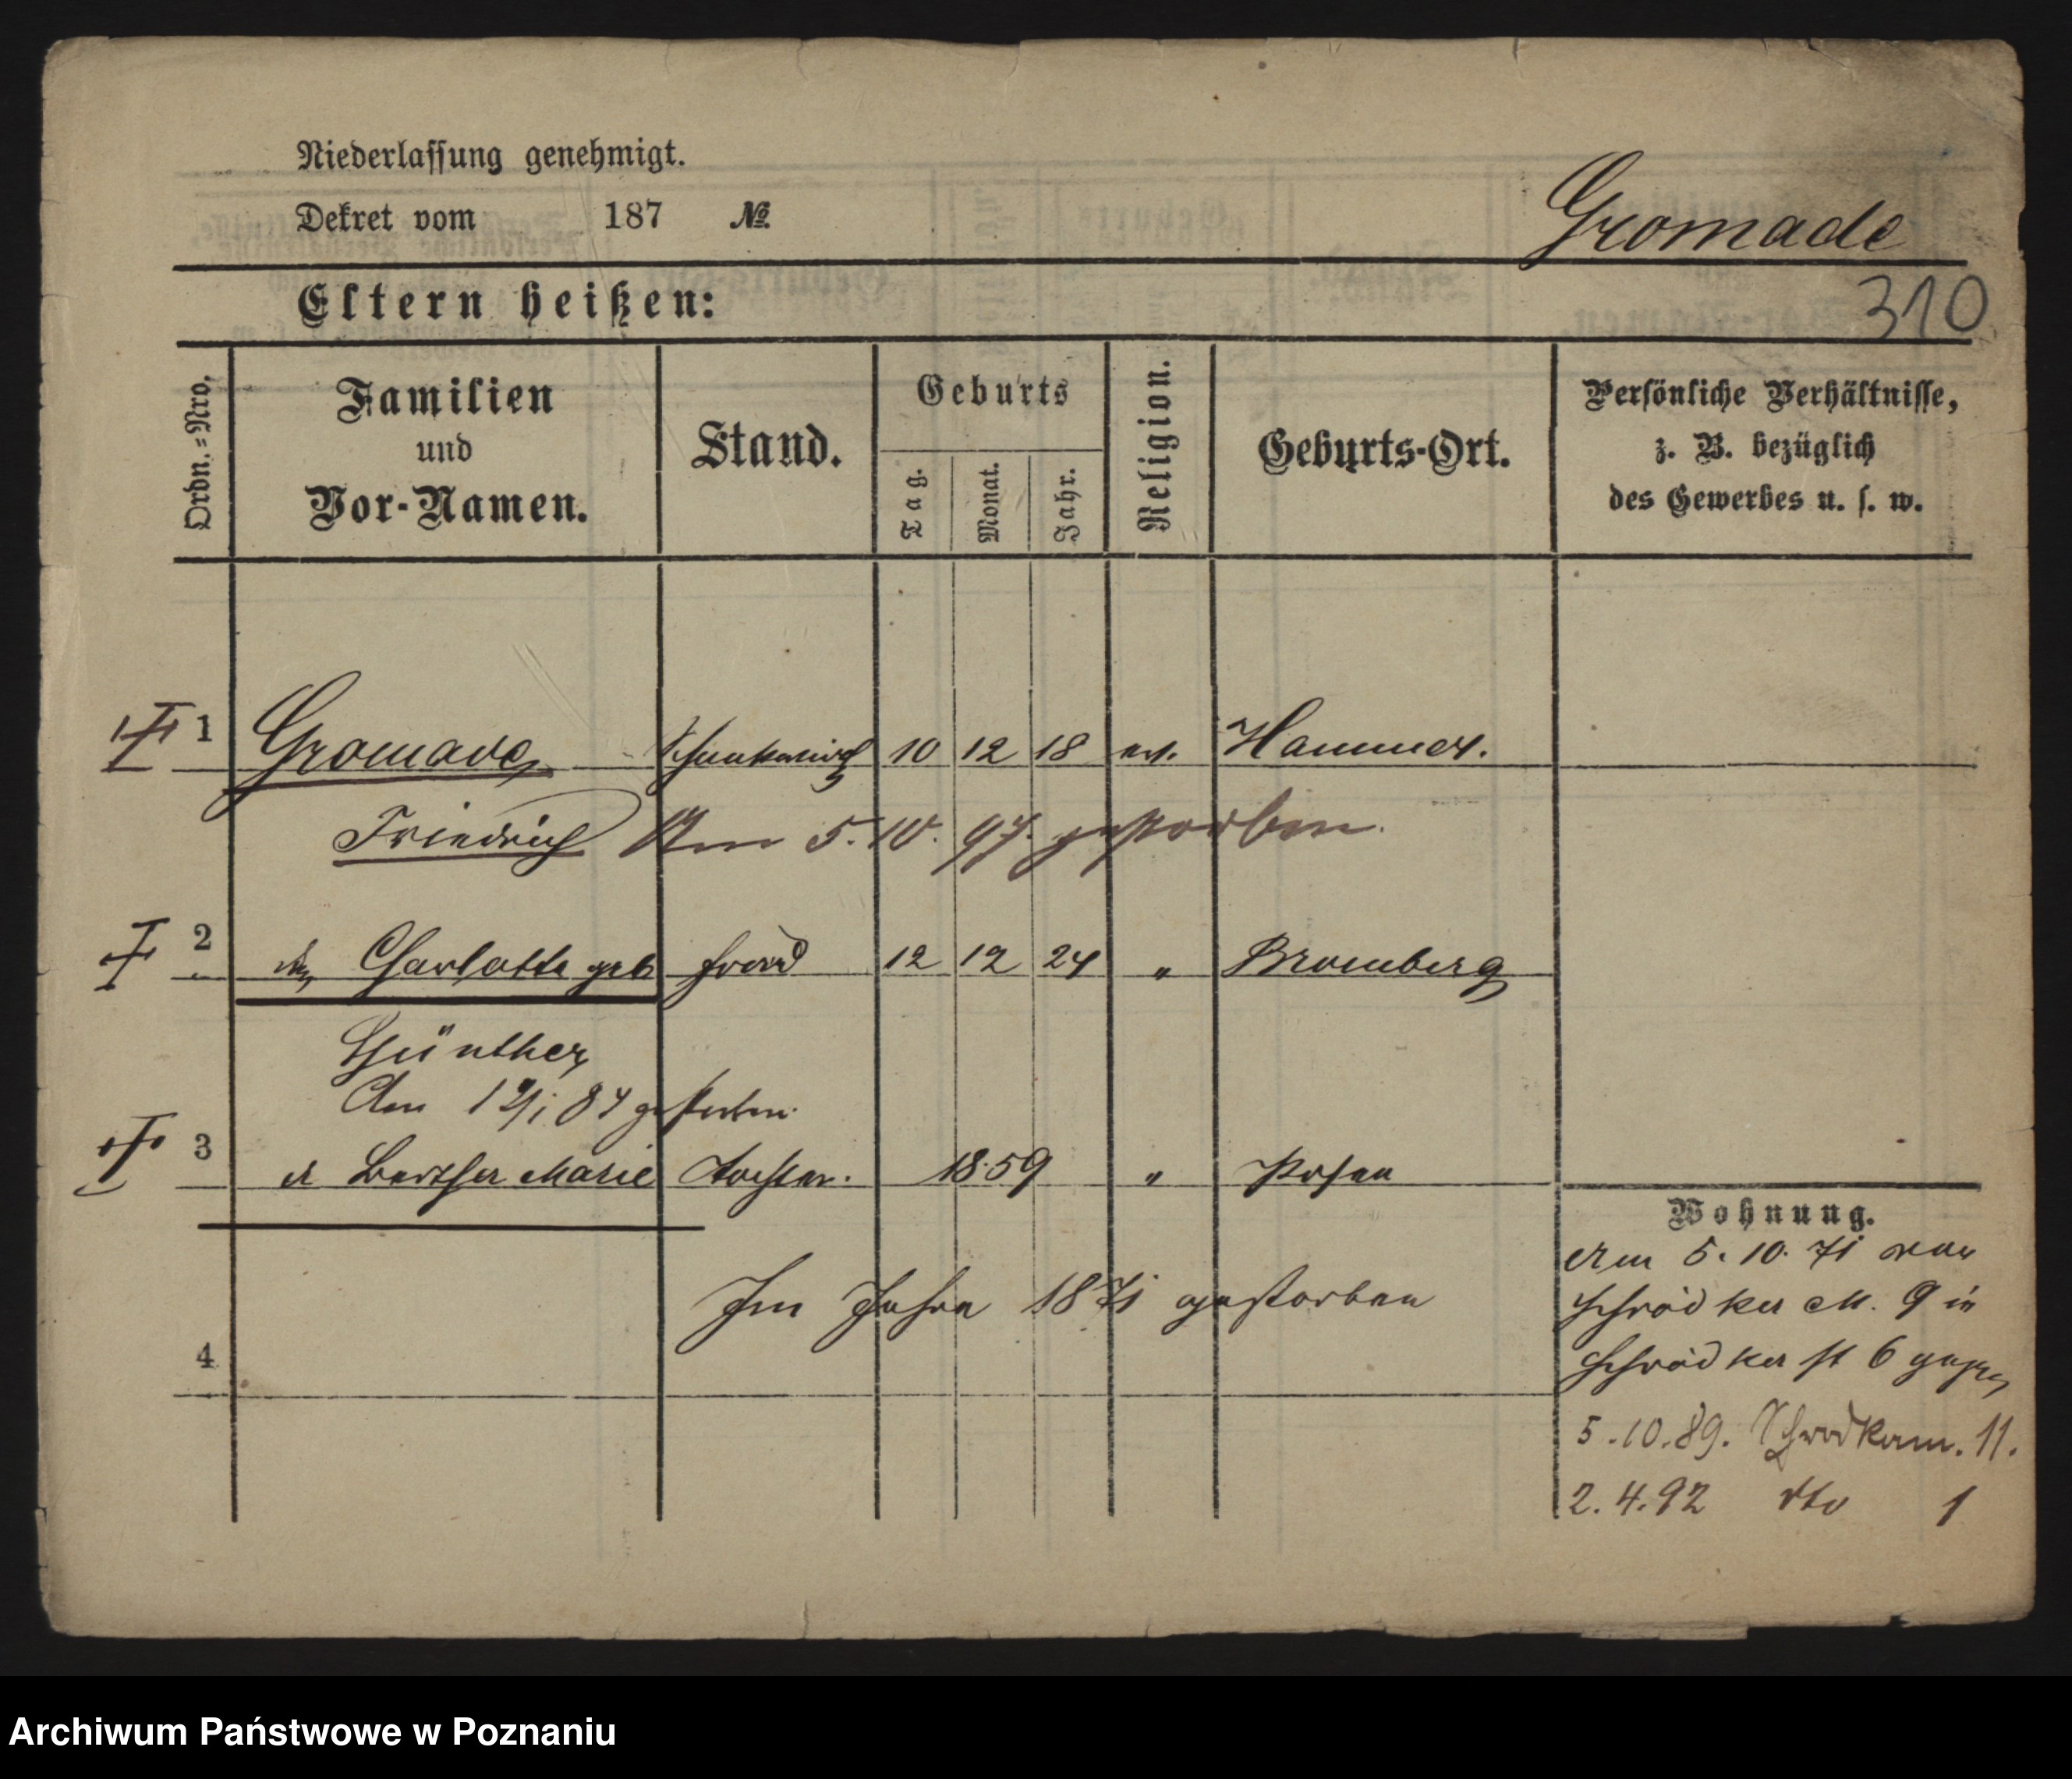 Niederlassung genehmigt.
Dekret vom 187 №
Gromade
310
Eltern heißen:
Ordn.=Nro.
Familien
und
Vor-Namen.
Stand.
Geburts
Tag.
Monat.
Jahr.
Religion.
Geburts-Ort.
Persönliche Verhältnisse,
z. B. bezüglich
des Gewerbes u. s. w.
1 Gromade, Schankwirth 10 12 18 ev. Hammer.
Friedrich Am 5. 10. 97. gestorben.
2 Charlotte geb Frau 12 12 24 " Bromberg
Günther,
Am gestorben.
3 Bertha Marie Tochter. 1859 " Posen
Im Jahre 1871 gestorben
4
Wohnung.
Am 5. 10. 71 von
Schrodker M. 9 in
Schrodker st 6 gezog,
5.10.89. Schrodkerm. 11.
2.4.92 dto 1
Archiwum Państwowe w Poznaniu